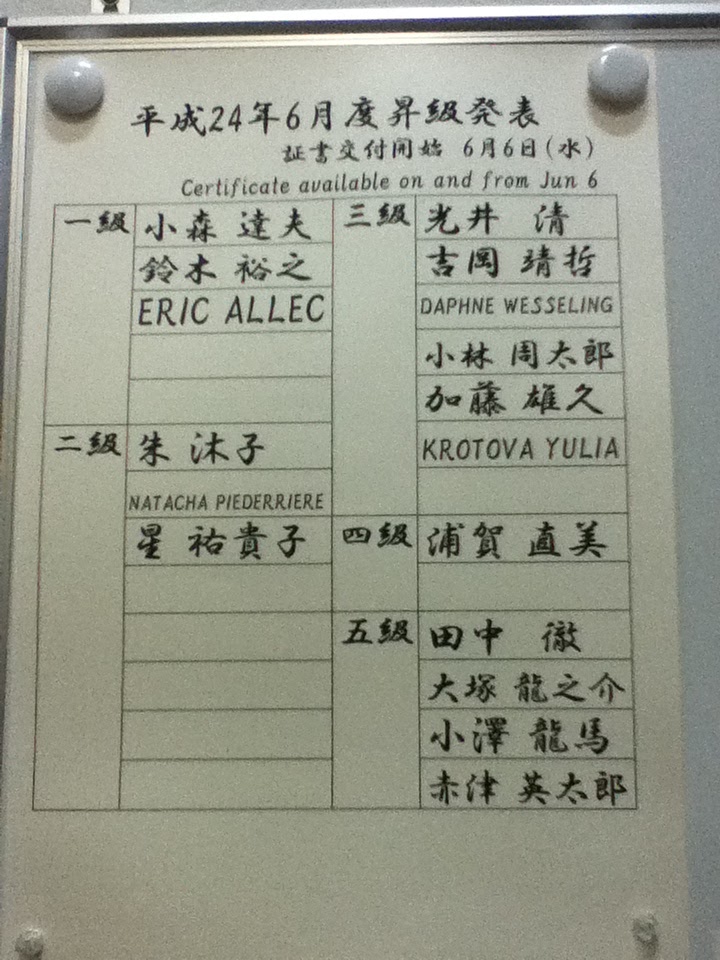 平成24年6月度昇級発表
証書交付開始 6月6日(水)
Certificate available on and from Jun 6
一級
小森 達夫
鈴木 裕之
ERIC ALLEC
二級
朱 沐子
NATACHA PIEDERRIERE
星 祐貴子
三級
光井 清
吉岡 靖哲
DAPHNE WESSELING
小林 周太郎
加藤 雄久
KROTOVA YULIA
四級
浦賀 直美
五級
田中 徹
大塚 龍之介
小澤 龍馬
赤津 英太郎